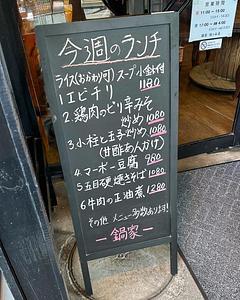 今週のランチ
ライス(おかわり可)スープ小鉢付
1 エビチリ 1180
2. 鶏肉のピリ辛みそ
炒め 1080
3. 小柱と玉子炒め 1080
(甘酢あんかけ)
4. マーボー豆腐 980
5. 五目硬焼きそば 1080
6 牛肉の正油煮 1280
その他 メニュー多数あります!
ー鍋家ー
営業時間
11:00 ~ 15:00
17:00 ~